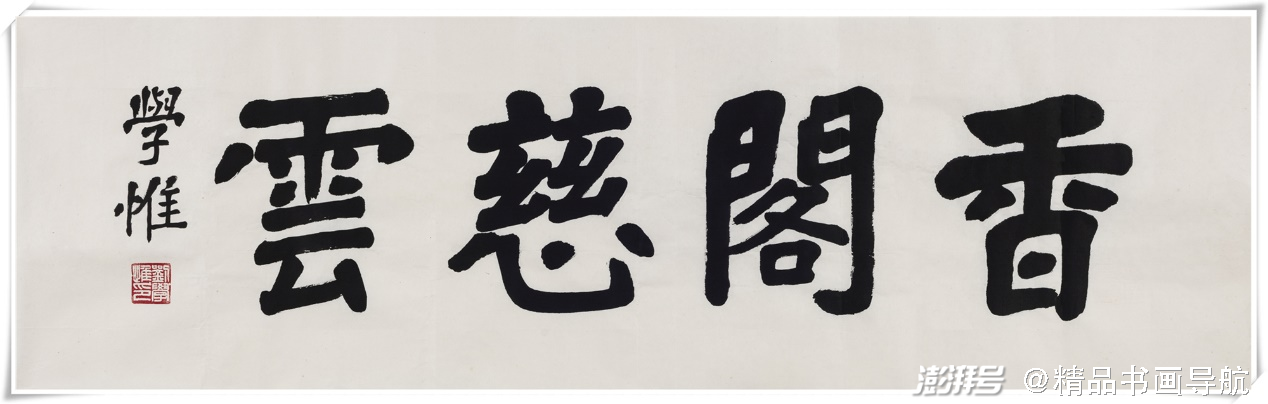 香閣慈雲
學惟
劉學惟印
澎湃号 @精品书画导航